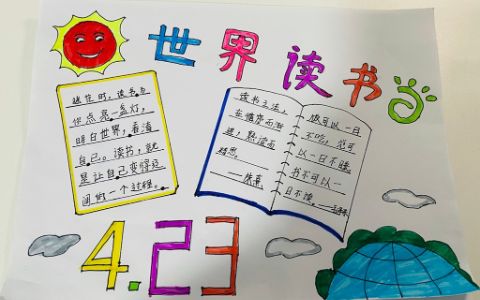 世界读书
迷茫时，读书为
你点亮一盏灯，
明白世界，看清
自己。读书，就
是让自己变得辽
阔的一个过程。
读书之法，
在循序而渐
进，熟读而
精思。
——朱熹
饭可以一日
不吃，觉可
以一日不睡，
书不可以一
日不读。——毛泽东
4.23